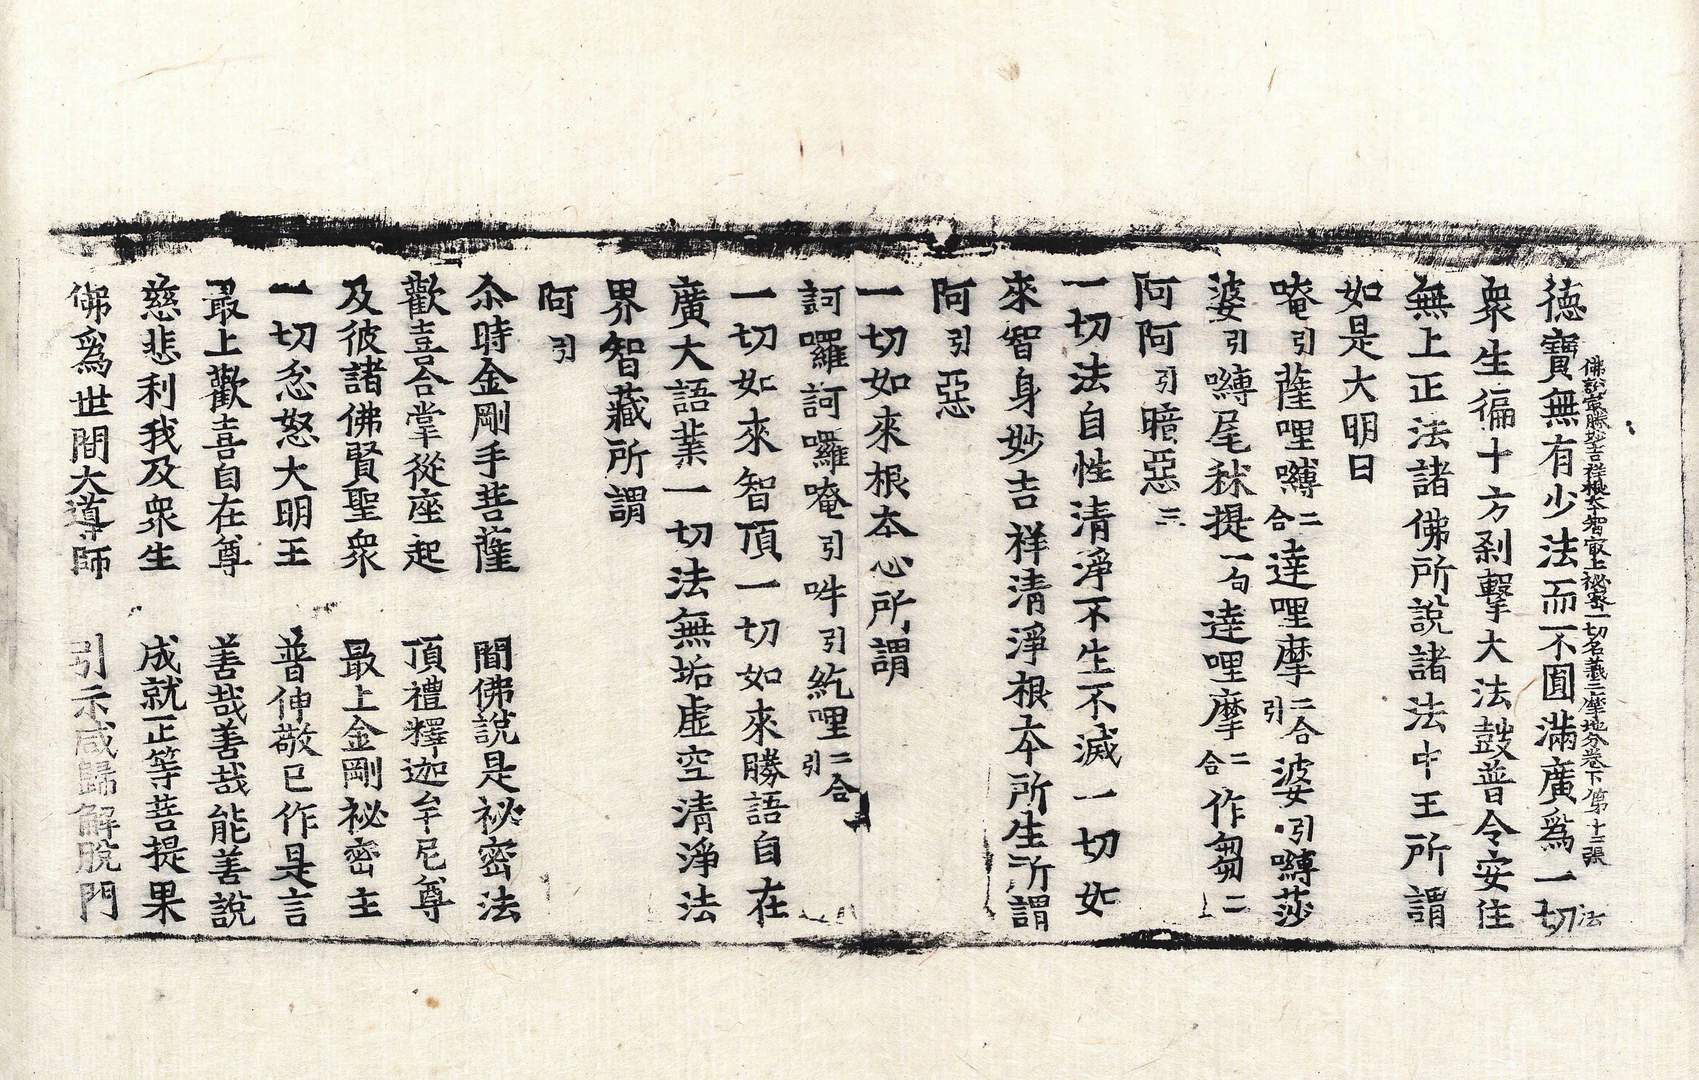 佛說最勝妙吉祥根本智最上祕密一切名義三摩地分卷下 第十二張 法
德寶無有少法而不圓滿廣爲一切
衆生徧十方刹擊大法鼓普令安住
無上正法諸佛所說諸法中王所謂
如是大明曰
唵引薩哩嚩二合達哩摩二合引婆引嚩莎
婆引嚩尾秫提一句達哩摩二合作芻二
阿阿引暗惡三
一切法自性清淨不生不滅一切如
來智身妙吉祥清淨根本所生所謂
阿引惡
一切如來根本心所謂
訶囉訶囉唵引吽引紇哩二合引
一切如來智頂一切如來勝語自在
廣大語業一切法無垢虛空清淨法
界智藏所謂
阿引
尒時金剛手菩薩 聞佛說是祕密法
歡喜合掌從座起 頂禮釋迦牟尼尊
及彼諸佛賢聖衆 最上金剛祕密主
一切忿怒大明王 普伸敬已作是言
最上歡喜自在尊 善哉善哉能善說
慈悲利我及衆生 成就正等菩提果
佛爲世間大導師 引示咸歸解脫門